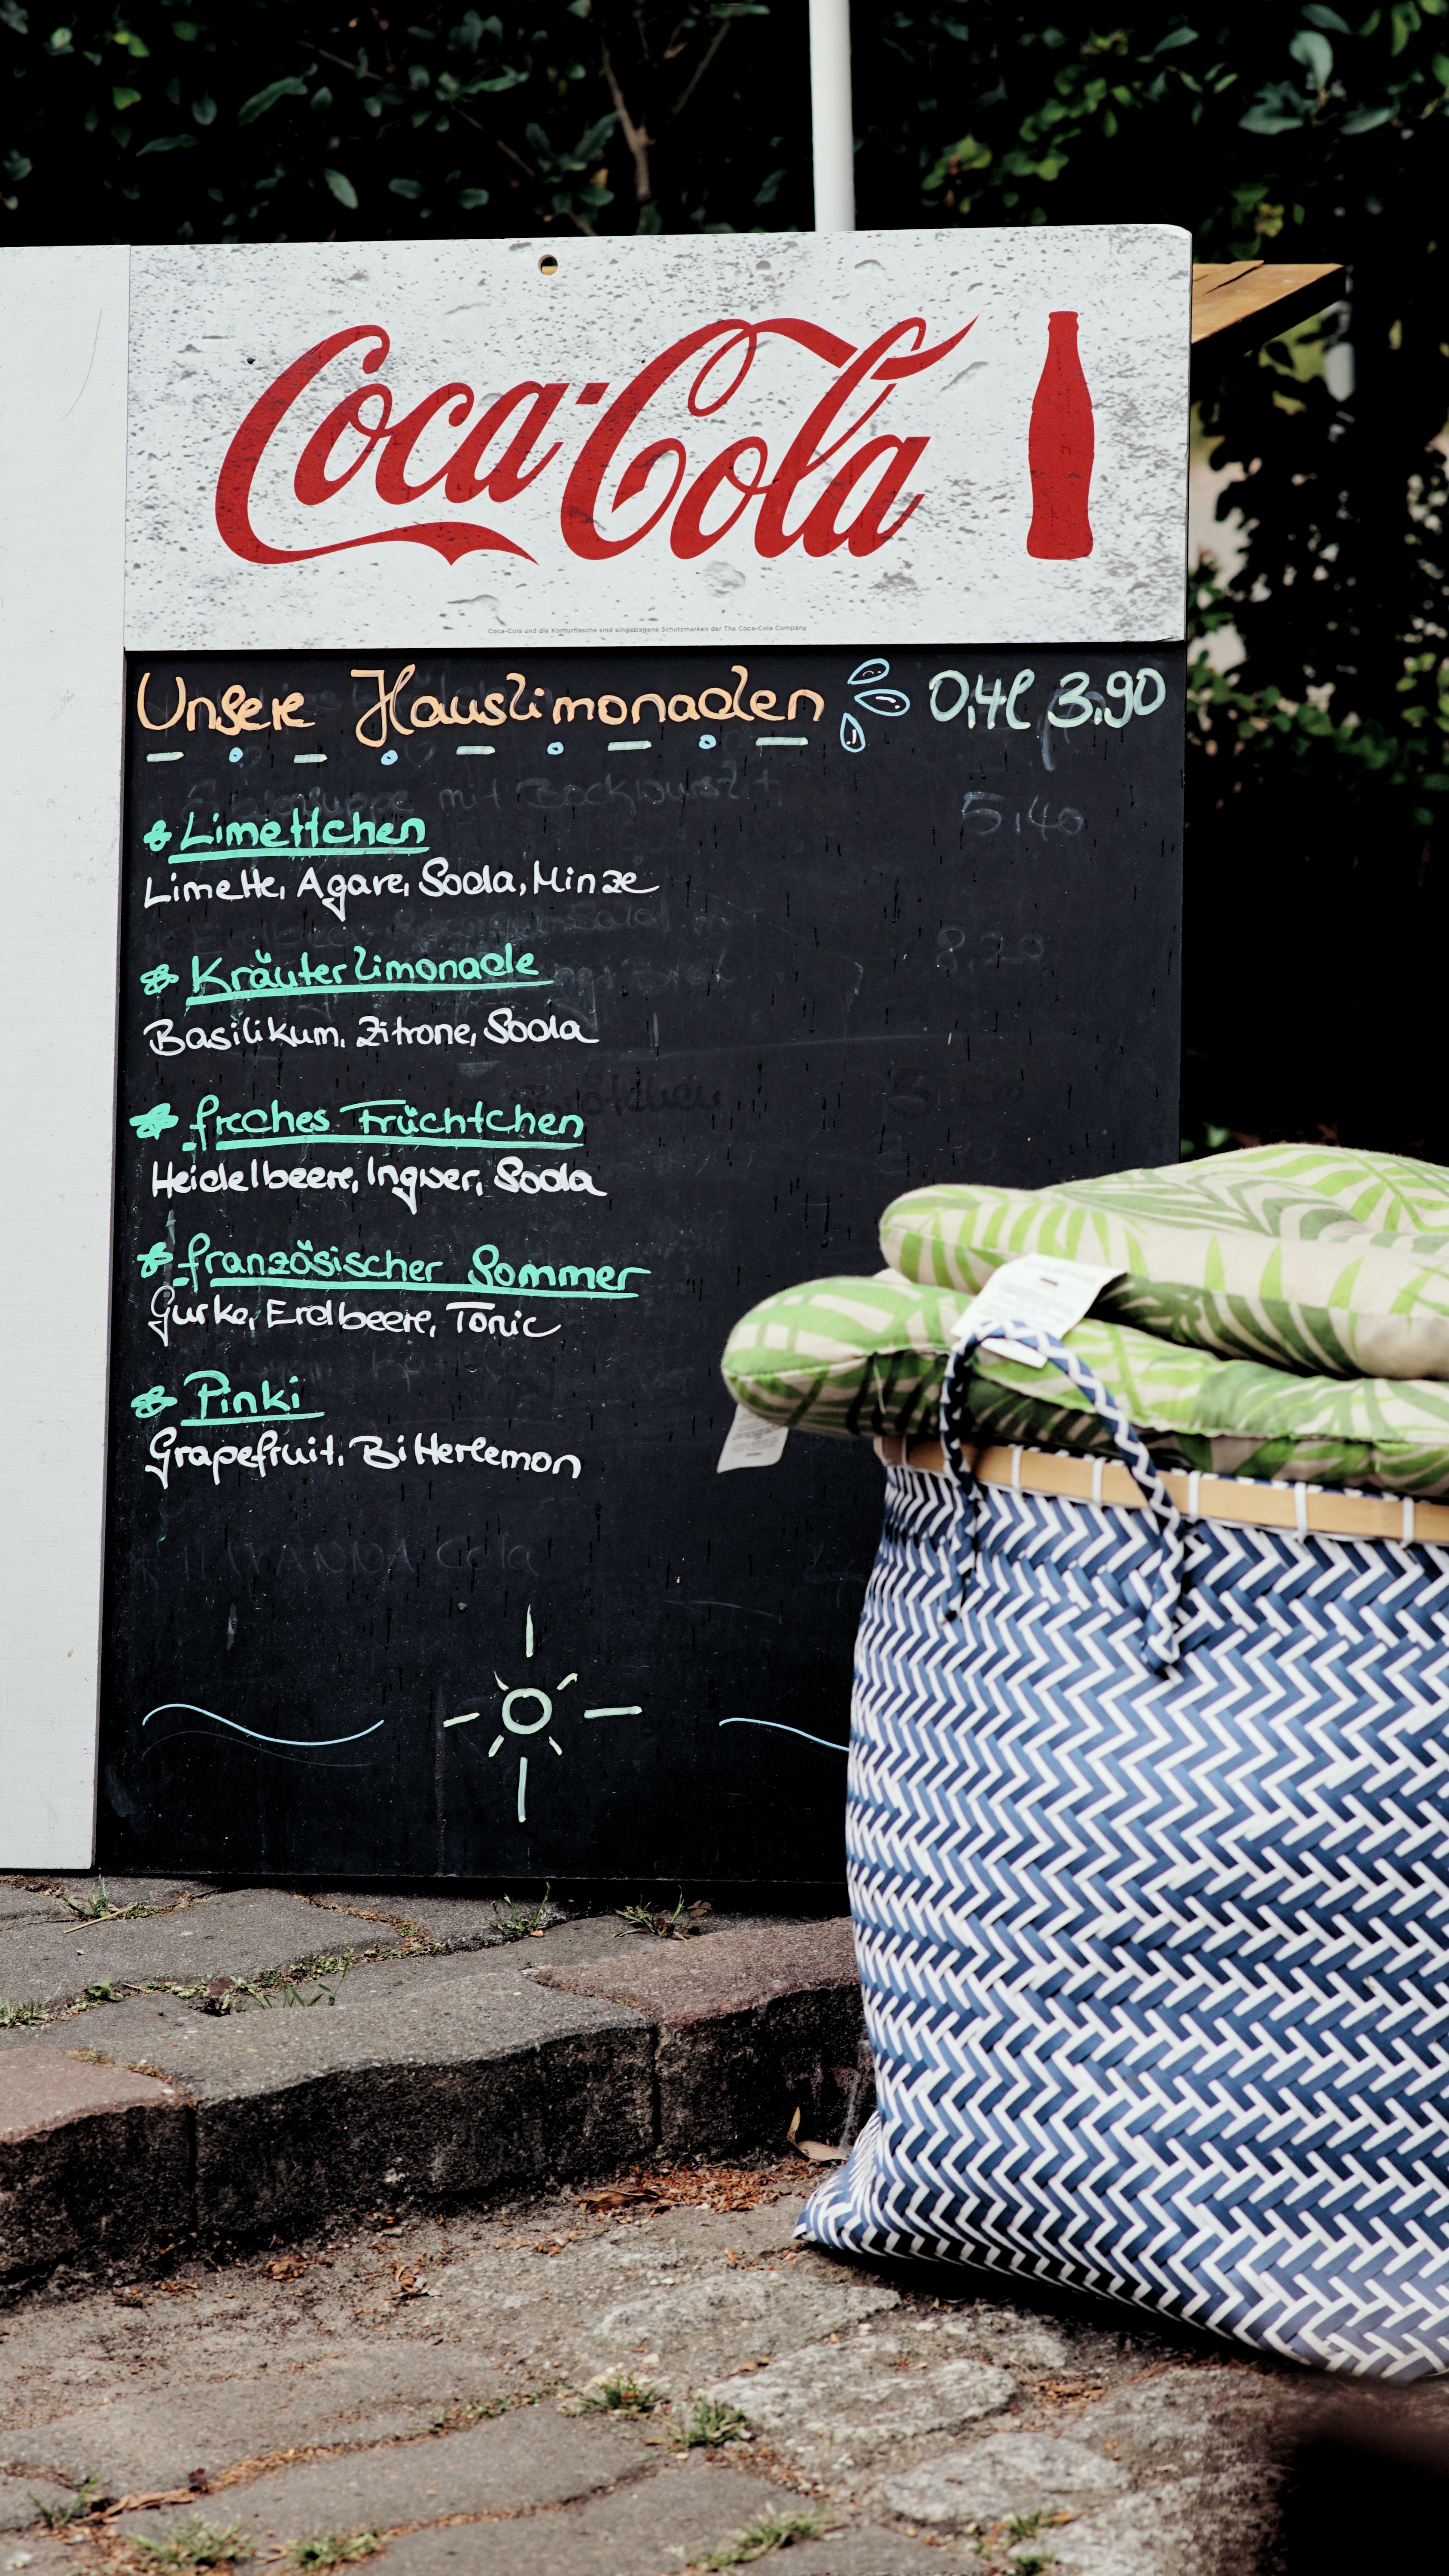 Coca-Cola
Coca-Cola und die Konturflasche sind eingetragene Schutzmarken der The Coca-Cola Company.
Unsere Hauslimonaden 0,4l 3.90
Limettchen
Limette, Agave, Soda, Minze
5,40
Kräuterlimonade
Basilikum, Zitrone, Soda
freches Früchtchen
Heidelbeere, Ingwer, Soda
französischer Sommer
Gurke, Erdbeere, Tonic
Pinki
Grapefruit, Bitterlemon